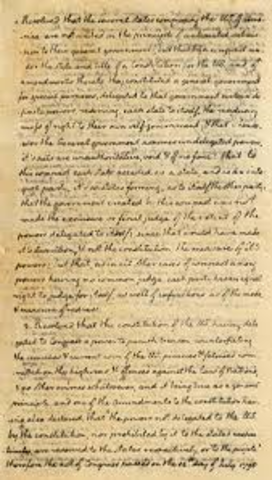 1. Resolved that the several states composing the US. of Ame-
rica are not united on the principle of unlimited submis-
sion to their general government; but that by a compact un-
der the style and title of a Constitution for the US. and of
amendments thereto, they constituted a general government
for special purposes, delegated to that government certain de-
finite powers, reserving each state to itself, the residuary
mass of right to their own self-government; & that whenso-
ever the General government assumes undelegated powers,
it's acts are unauthoritative, void, & of no force: that to
this compact each state acceded as a state, and is an inte-
gral party, it's co-states forming, as to itself, the other party:
that the government created by this compact was not
made the exclusive or final judge of the extent of the
powers delegated to itself; since that would have made
it's discretion, & not the constitution, the measure of it's
powers; but that, as in all other cases of compact among
powers having no common judge, each party has an equal
right to judge for itself, as well of infractions as of the mode
& measure of redress.
2. Resolved that the constitution of the US. having dele-
gated to Congress a power to punish treason, counterfeiting
the securities & current coin of the US. piracies & felonies com-
mitted on the high seas & offences against the law of nations,
& no other crimes whatsoever, and it being true as a general
principle, and one of the amendments to the constitution hav-
ing also declared, that 'the powers not delegated to the US.
by the constitution, nor prohibited by it to the states
are reserved to the states respectively, or to the people'
therefore the act of Congress passed on the 14th day of July 1798